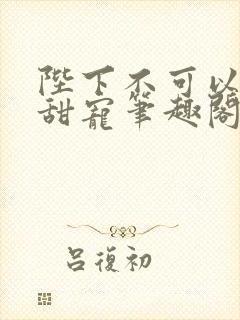 陛下不可以
甜寵筆趣閣
呂復初